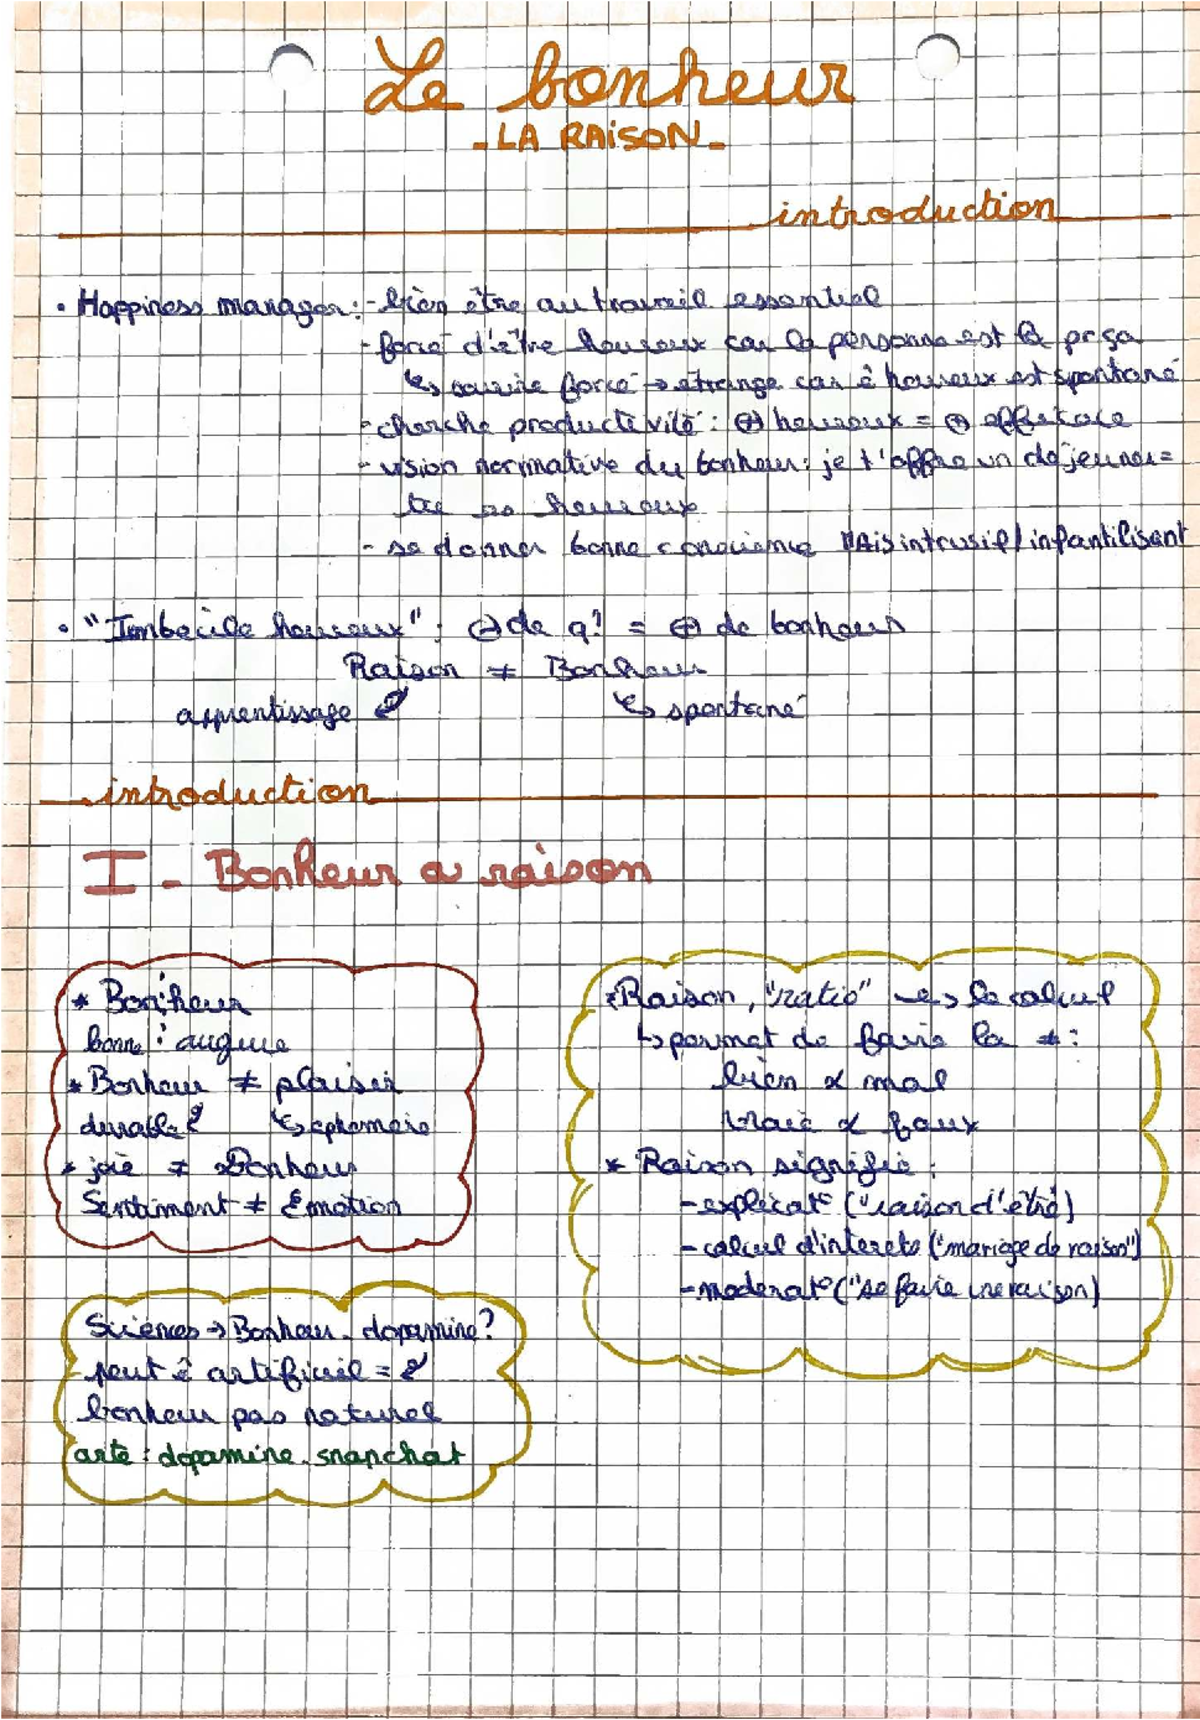 Le bonheur
- LA RAiSON -
introduction
• Happiness manager : - bien être au travail essentiel
- forcé d'être heureux car la personne est là pr ça
↳ sourire forcé → étrange car ê heureux est spontané
- cherche productivité : ⊕ heureux = ⊕ efficace
- vision normative du bonheur : je t'offre un dejeuner =
tu es heureux
- se donner bonne conscience MAis intrusif / infantilisant
• "Imbécile heureux" : ⊖ de q? = ⊕ de bonheur
Raison ≠ Bonheur
apprentissage ↲ ↳ spontané
introduction
I - Bonheur & raison
* Bon heur
bonne : augure
* Bonheur ≠ plaisir
durable ↲ ↳ ephemere
* joie ≠ Bonheur
Sentiment ≠ Emotion
* Raison, "ratio" → le calcul
↳ permet de faire la ≠ :
bien & mal
vraie & faux
* Raison signifie :
- explicat° ("raison d'être)
- calcul d'interets ("mariage de raison")
- moderat° ("se faire une raison)
Sciences → Bonheur - dopamine ?
peut ê artificiel = ↲
bonheur pas naturel
arte : dopamine snapchat